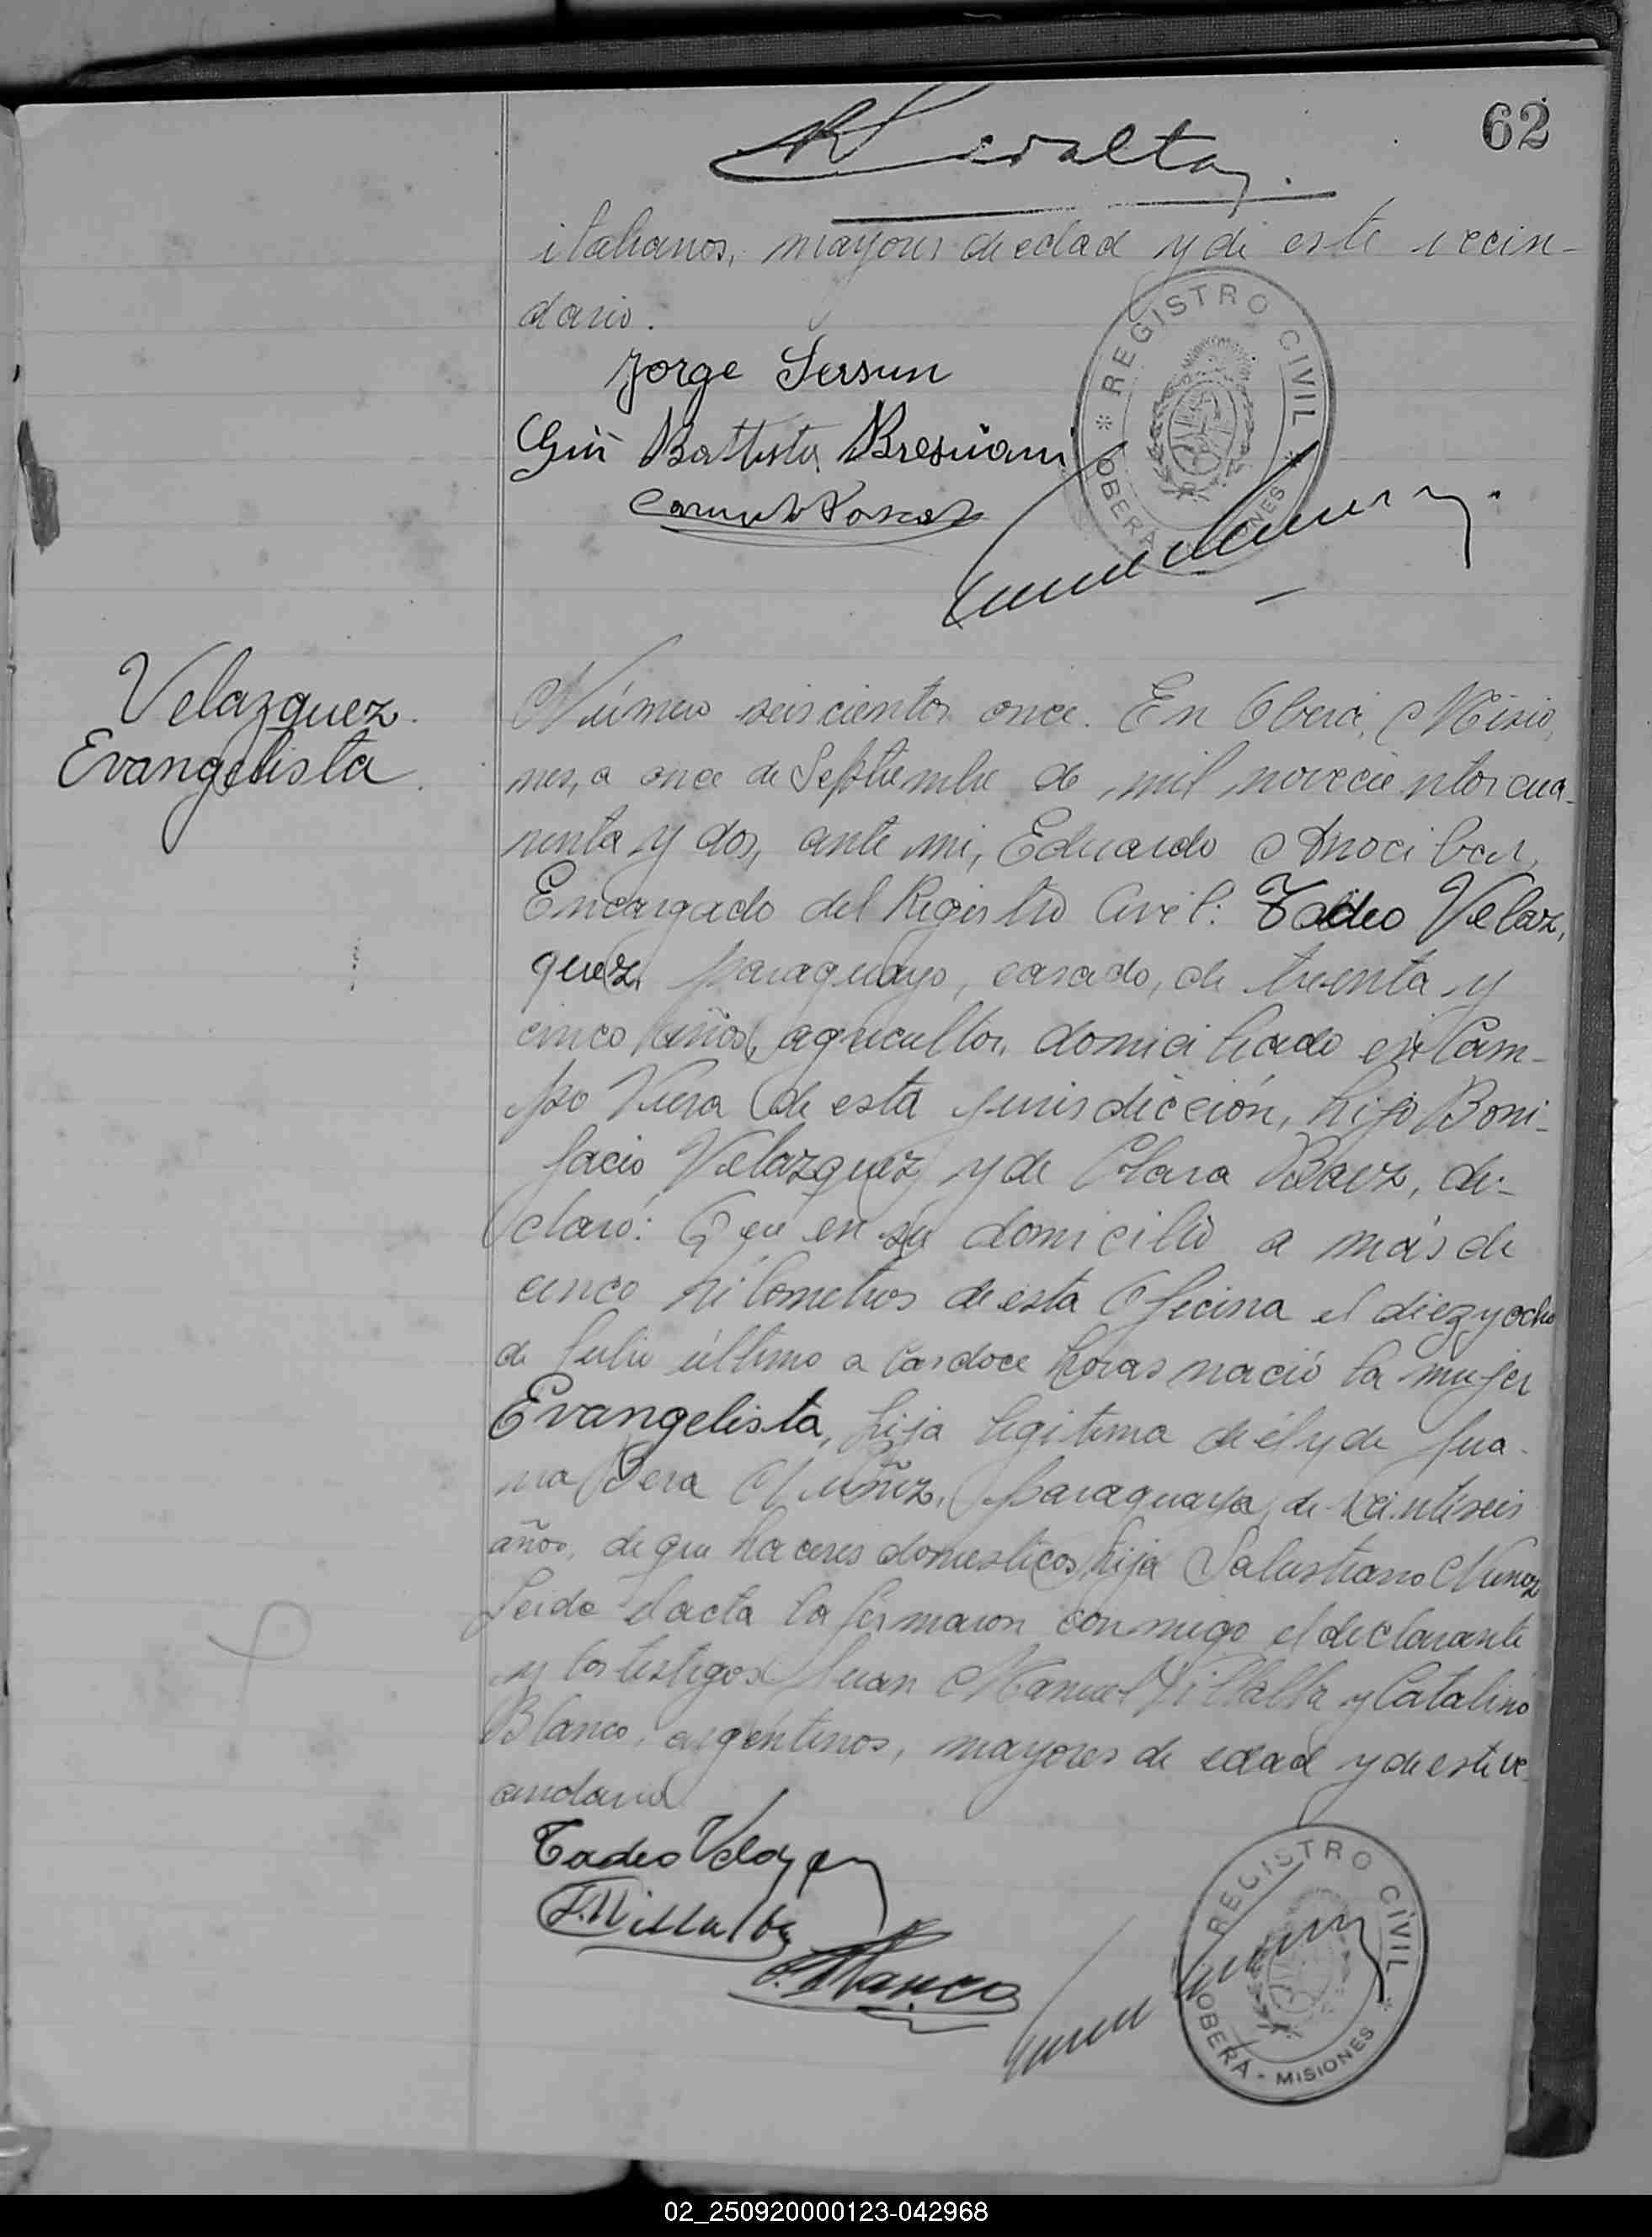 62
italianos, mayores de edad y de este vecin-
dario.
REGISTRO CIVIL
OBERÁ MISIONES
Jorge
Battista
Velazquez
Evangelista
Número seiscientos once. En Oberá, Misio,
nes, a once de Septiembre de mil novecientos cua-
renta y dos, ante mi, Eduardo
Encargado del Registro Civil: Tadeo Velaz,
quez, paraguayo, casado, de treinta y
cinco años, agricultor, domiciliado en Cam-
po Viera de esta jurisdicción, hijo Boni-
facio Velazquez y de Clara Baez, de-
claró: Que en su domicilio a más de
cinco kilometros de esta Oficina el diez y ocho
de Julio último a las doce horas nació la mujer
Evangelista, hija legitima de él y de Jua-
na Vera Nuñez, paraguaya, de veintiseis
años, de que haceres domesticos, hija Salustiano Nuñez
Leida el acta la firmaron conmigo el declarante
y los testigos Juan Manuel Villalba y Catalino
Blanco, argentinos, mayores de edad y de este ve-
cindario
Tadeo Velazquez
J. Villalba
C. Blanco
REGISTRO CIVIL
OBERÁ - MISIONES
02_250920000123-042968